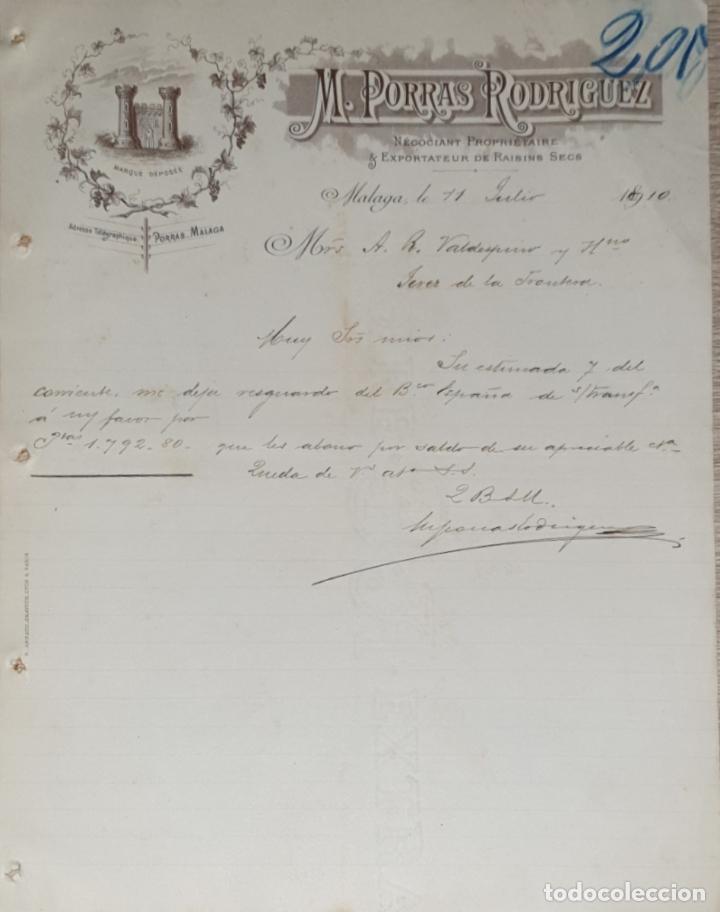 2,00
M. PORRAS RODRIGUEZ
NÉGOCIANT PROPRIÉTAIRE
& EXPORTATEUR DE RAISINS SECS
MARQUE DÉPOSÉE
Adresse Télégraphique PORRAS. MALAGA
Malaga, le 11 Julio 1910
Mrs A. R. Valdespino y Hno
Jerez de la Frontera.
Muy Srs mios:
Su estimada 7 del
corriente, me deja resguardo del Bco España de s/transfa
á m/ favor por
Ptas 1.792-80- que les abono por saldo de su apreciable cta
Queda de Vs atto S.S.
Q B S M.
M Porras Rodriguez
PARIS
todocoleccion.net